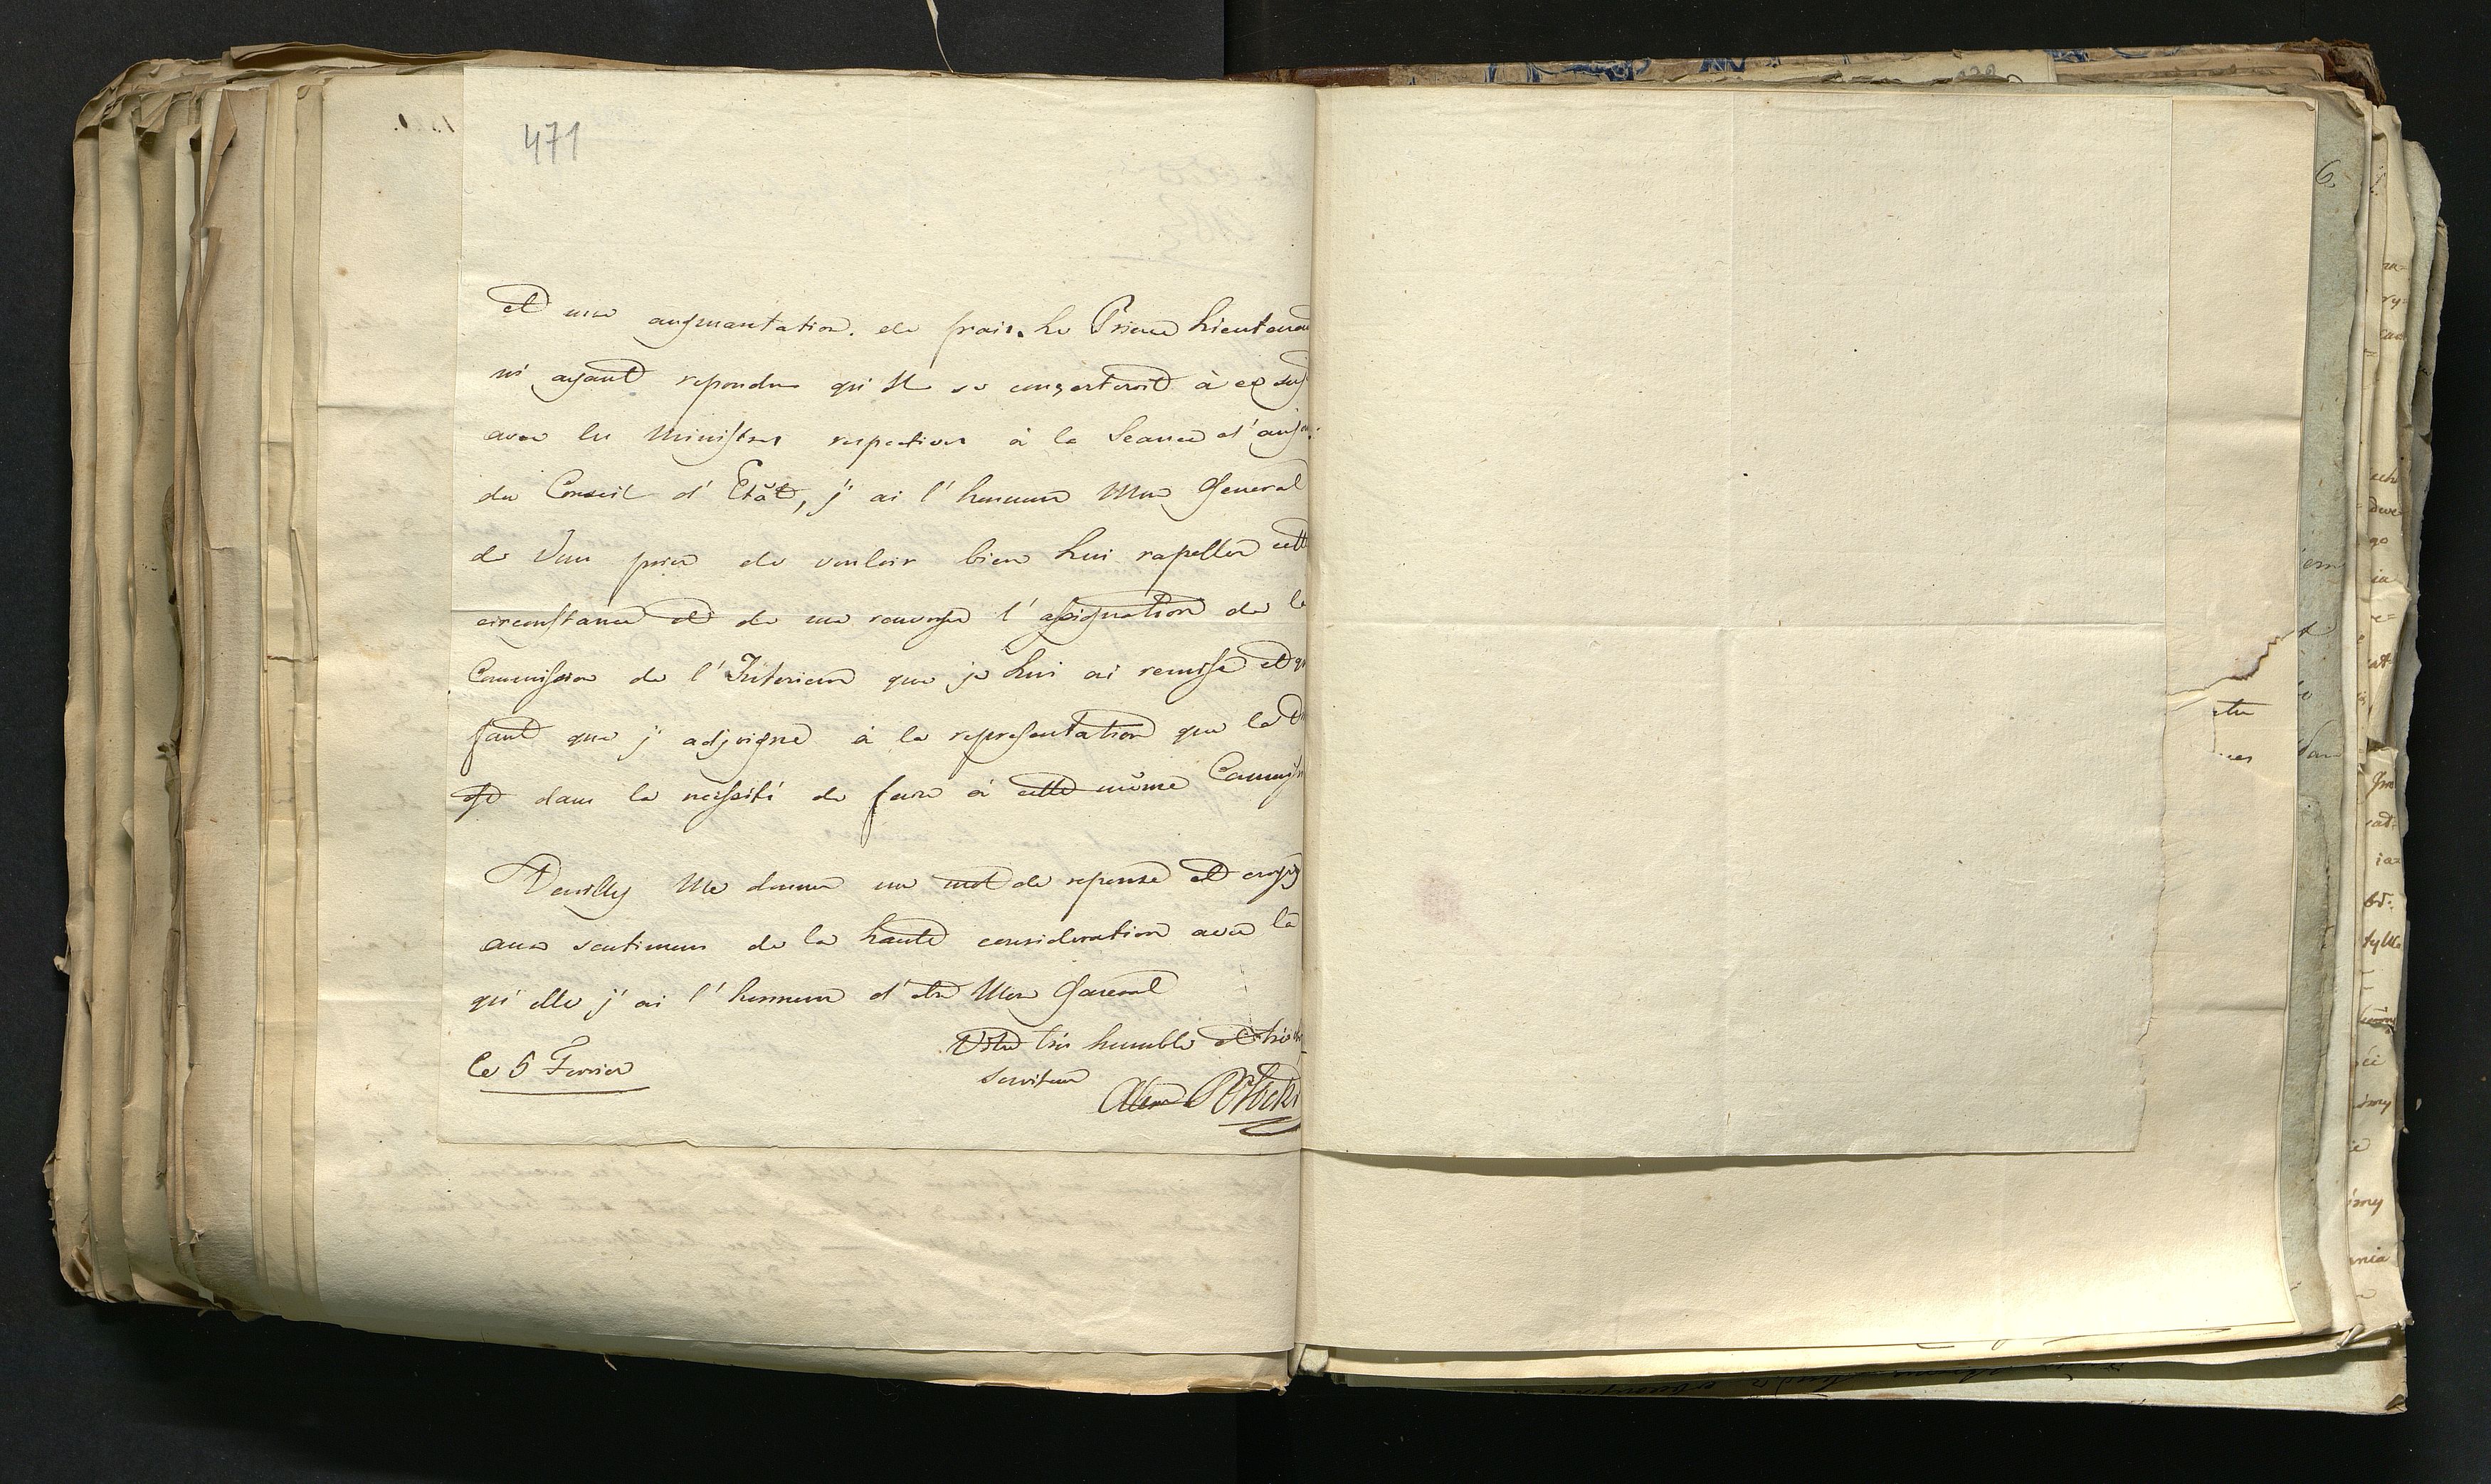 471
et une augmantation de frais. Le Prince Lieutena
m'ayant repondu qu'Il se conserteroit à ce suj
avec les Ministres respectives à la Seance d'auj
du Conseil d'Etăt, j'ai l'honneur Mon General
de Vous prier de vouloir bien Lui rapeller cett
circonstance et de me renvoyer l'assignation de la
Commission de l'Interieur que je Lui ai remise et q
faut que j'adjoigne à la representation que la D
est dans la nessité de faire à cette même Commiss
Veuilléz Me donner un mot de reponse et croyéz
aux sentimens de la haute consideration avec la
qu'elle j'ai l'honneur d'etre Mon General
Votre très humble et très
serviteur
Le 5 Fevrier
Alexe Potocki